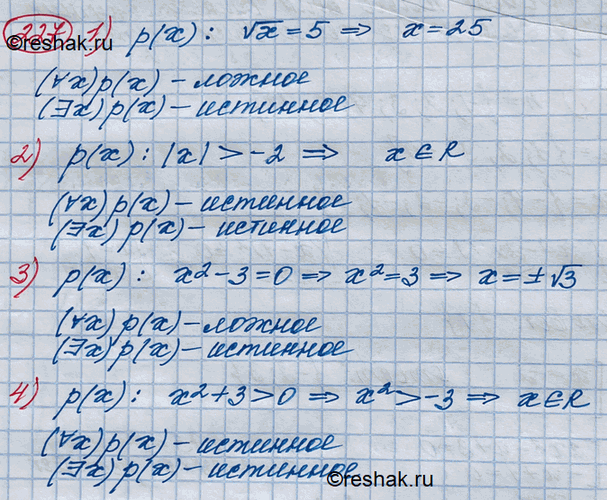 227 1) p(x): √x = 5 ⇒ x = 25
©reshak.ru
(∀x)p(x) – ложное
(∃x)p(x) – истинное
2) p(x): |x| > -2 ⇒ x ∈ R
(∀x)p(x) – истинное
(∃x)p(x) – истинное
3) p(x): x² - 3 = 0 ⇒ x² = 3 ⇒ x = ±√3
(∀x)p(x) – ложное
(∃x)p(x) – истинное
4) p(x): x² + 3 > 0 ⇒ x² > -3 ⇒ x ∈ R
(∀x)p(x) – истинное
(∃x)p(x) – истинное
©reshak.ru